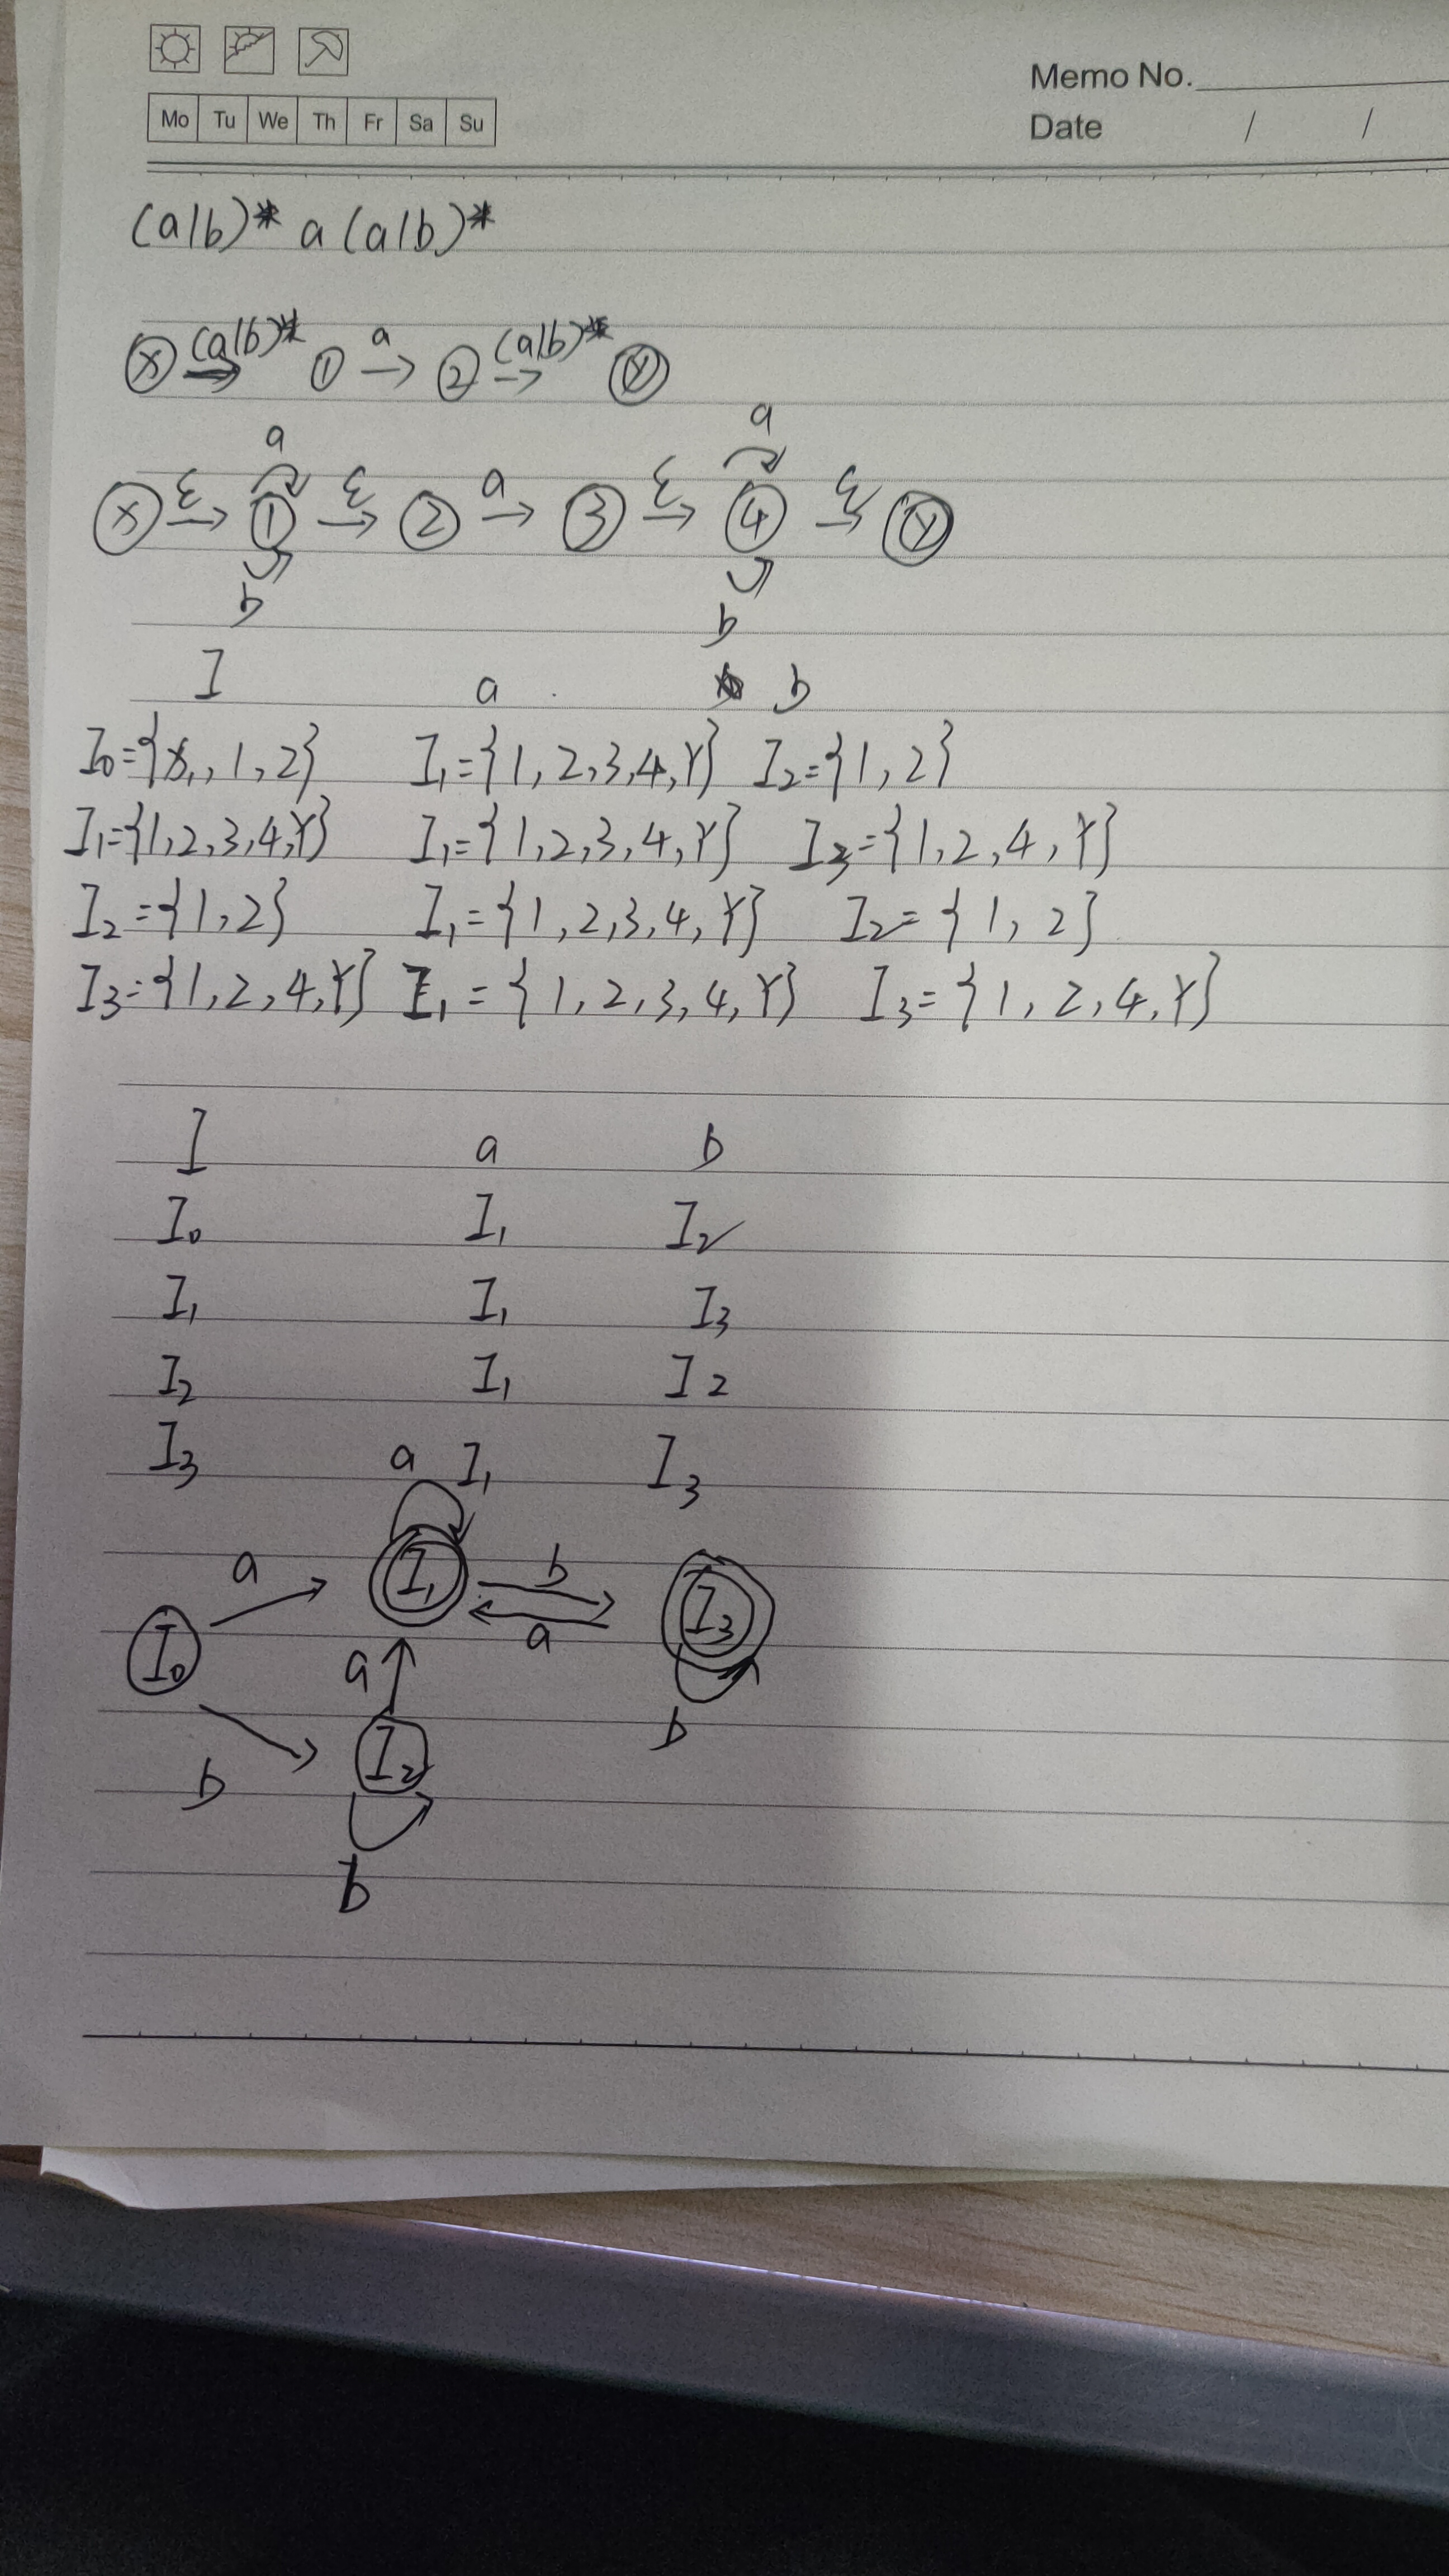 Memo No.
Mo Tu We Th Fr Sa Su
Date / /
(a|b)* a (a|b)*
X (a|b)* → 1 a → 2 (a|b)* → Y
a a
X ε → 1 ε → 2 a → 3 ε → 4 ε → Y
b b
I a b
I₀={X,,1,2} I₁={1,2,3,4,Y} I₂={1,2}
I₁={1,2,3,4,Y} I₁={1,2,3,4,Y} I₃={1,2,4,Y}
I₂={1,2} I₁={1,2,3,4,Y} I₂={1,2}
I₃={1,2,4,Y} I₁={1,2,3,4,Y} I₃={1,2,4,Y}
I a b
I₀ I₁ I₂
I₁ I₁ I₃
I₂ I₁ I₂
I₃ I₁ I₃
a
a I₁ b I₃
I₀ a a
b I₂ b
b